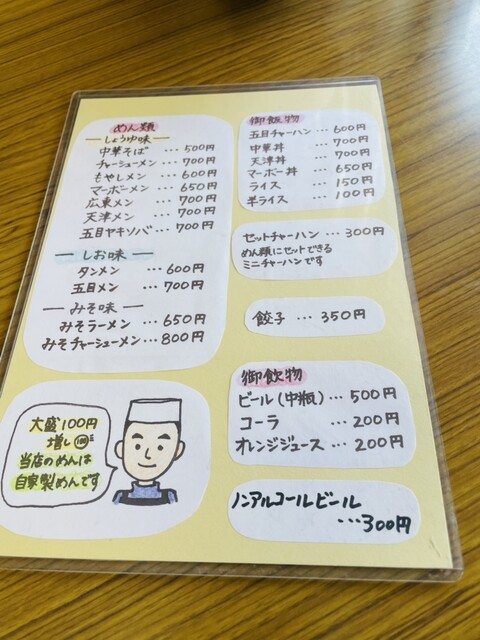 めん類
ー しょうゆ味 ー
中華そば ・・・ 500円
チャーシューメン ・・・ 700円
もやしメン ・・・ 600円
マーボーメン ・・・ 650円
広東メン ・・・ 700円
天津メン ・・・ 700円
五目ヤキソバ ・・・ 700円
ー しお味 ー
タンメン ・・・ 600円
五目メン ・・・ 700円
ー みそ味 ー
みそラーメン ・・・ 650円
みそチャーシューメン ・・・ 800円
大盛100円
増し
当店のめんは
自家製めんです
御飯物
五目チャーハン ・・・ 600円
中華丼 ・・・ 700円
天津丼 ・・・ 700円
マーボー丼 ・・・ 650円
ライス ・・・ 150円
半ライス ・・・ 100円
セットチャーハン ・・・ 300円
めん類にセットできる
ミニチャーハンです
餃子 ・・・ 350円
御飲物
ビール(中瓶) ・・・ 500円
コーラ ・・・ 200円
オレンジジュース ・・・ 200円
ノンアルコールビール
・・・300円